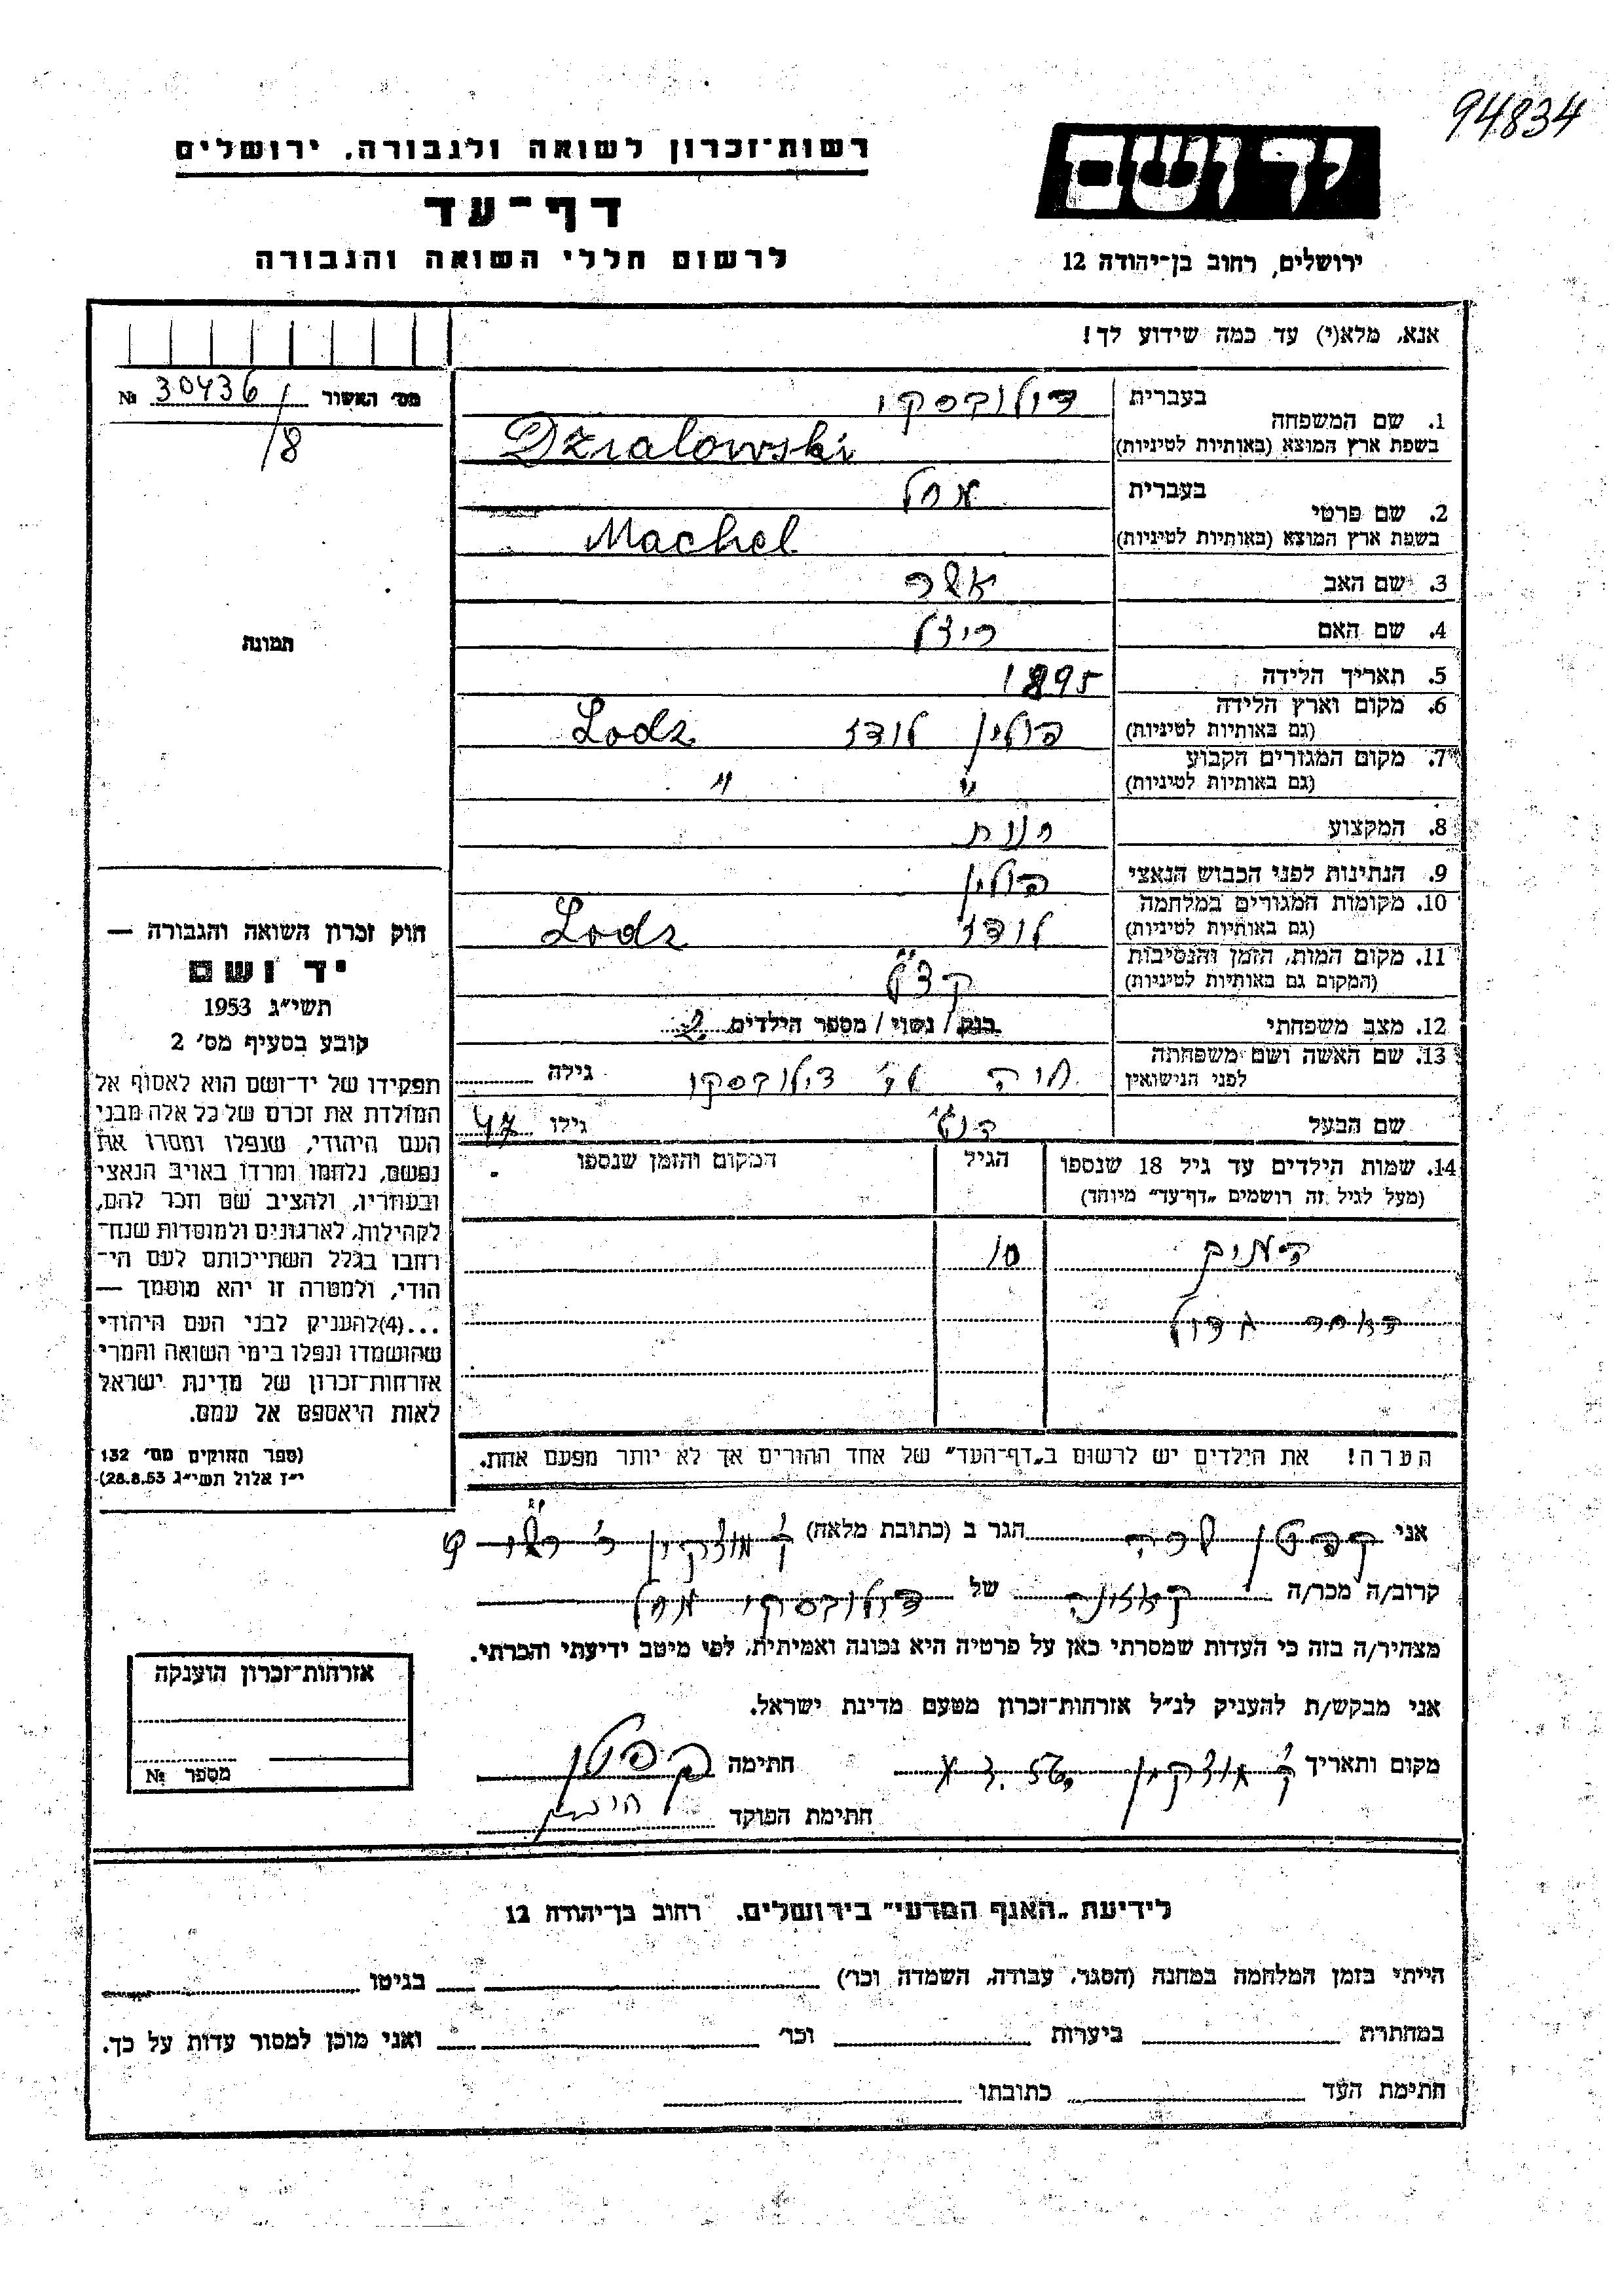 94834
יד ושם
ירושלים, רחוב בן־יהודה 12
רשות־זכרון לשואה ולגבורה, ירושלים
דף־עד
לרשום חללי השואה והגבורה
אנא, מלא(י) עד כמה שידוע לך!
מס׳ האשור № 30436/8
תמונה
1. שם המשפחה בעברית
בשפת ארץ המוצא (באותיות לטיניות) Dzialowski
2. שם פרטי בעברית מחל
בשפת ארץ המוצא (באותיות לטיניות) Machel
3. שם האב אשר
4. שם האם
5. תאריך הלידה 1895
6. מקום וארץ הלידה פולין לודז Lodz
(גם באותיות לטיניות)
7. מקום המגורים הקבוע " "
(גם באותיות לטיניות)
8. המקצוע
9. הנתינות לפני הכבוש הנאצי פולין
10. מקומות המגורים במלחמה לודז Lodz
(גם באותיות לטיניות)
11. מקום המות, הזמן והנסיבות
(המקום גם באותיות לטיניות)
12. מצב משפחתי רווק / נשוי / מספר הילדים 2
13. שם האשה ושם משפחתה חיה גילה
לפני הנישואין
שם הבעל גילו 47
14. שמות הילדים עד גיל 18 שנספו הגיל המקום והזמן שנספו
(מעל לגיל זה רושמים „דף־עד״ מיוחד)
10
הערה! את הילדים יש לרשום ב„דף־העד״ של אחד ההורים אך לא יותר מפעם אחת.
חוק זכרון השואה והגבורה —
יד ושם
תשי״ג 1953
קובע בסעיף מס׳ 2
תפקידו של יד־ושם הוא לאסוף אל
המולדת את זכרם של כל אלה מבני
העם היהודי, שנפלו ומסרו את
נפשם, נלחמו ומרדו באויב הנאצי
ובעוזריו, ולהציב שם וזכר להם,
לקהילות, לארגונים ולמוסדות שנח־
רחבו בגלל השתייכותם לעם הי־
הודי, ולמטרה זו יהא מוסמך —
...(4)להעניק לבני העם היהודי
שהושמדו ונפלו בימי השואה והמרי
אזרחות־זכרון של מדינת ישראל
לאות היאספם אל עמם.
(ספר החוקים מס׳ 132
י״ז אלול תשי״ג 28.8.53)
אני הגר ב (כתובת מלאה) ק׳ מוצקין
קרוב/ה מכר/ה של מחל
מצהיר/ה בזה כי העדות שמסרתי כאן על פרטיה היא נכונה ואמיתית, לפי מיטב ידיעתי והכרתי.
אני מבקש/ת להעניק לנ״ל אזרחות־זכרון מטעם מדינת ישראל.
מקום ותאריך ק׳ מוצקין חתימה
חתימת הפוקד
אזרחות־זכרון הוענקה
מספר №
לידיעת „האגף המדעי״ בירושלים. רחוב בן־יהודה 12
הייתי בזמן המלחמה במחנה (הסגר, עבודה, השמדה וכו׳) בגיטו
במחתרת ביערות וכו׳ ואני מוכן למסור עדות על כך.
חתימת העד כתובתו